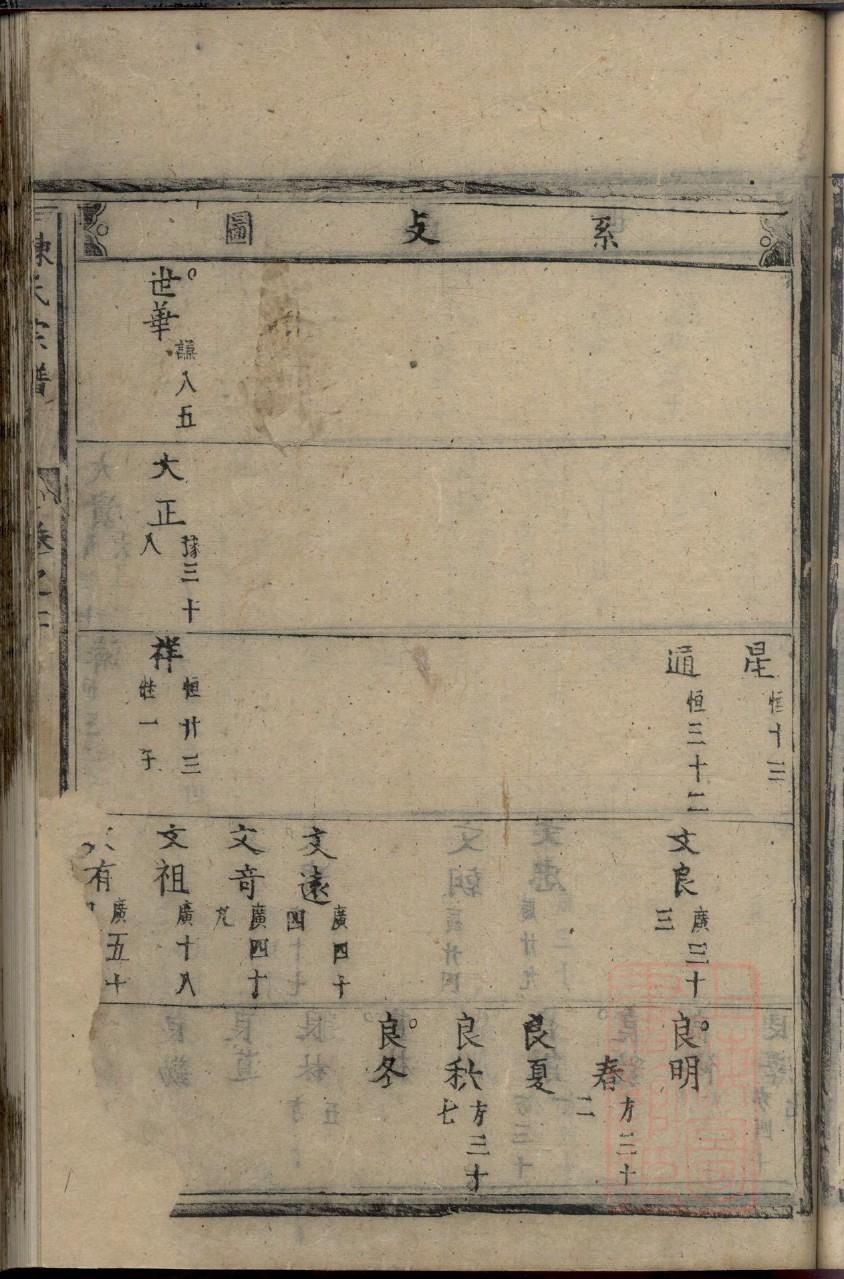 系攴圖
世華 謙八五
大正 豫三十八
星 恒十三
通 恒三十二
祥 恒廿三
文良 廣三十三
文遠 廣四十四
文奇 廣四十九
文祖 廣十八
有 廣五十
良明
春 方三十二
良夏
良秋 方三十七
良冬
氏宗譜
卷之二